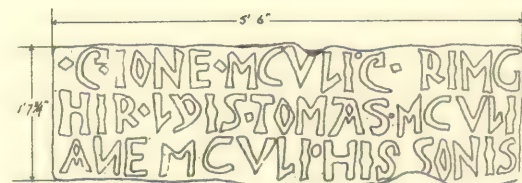 5' 6"
1' 7¾"
·C·IONE·MCVLIC· RIMG
HIR·LDIS·TOMAS·MCVLI
AVE MCVLI·HIS SONIS